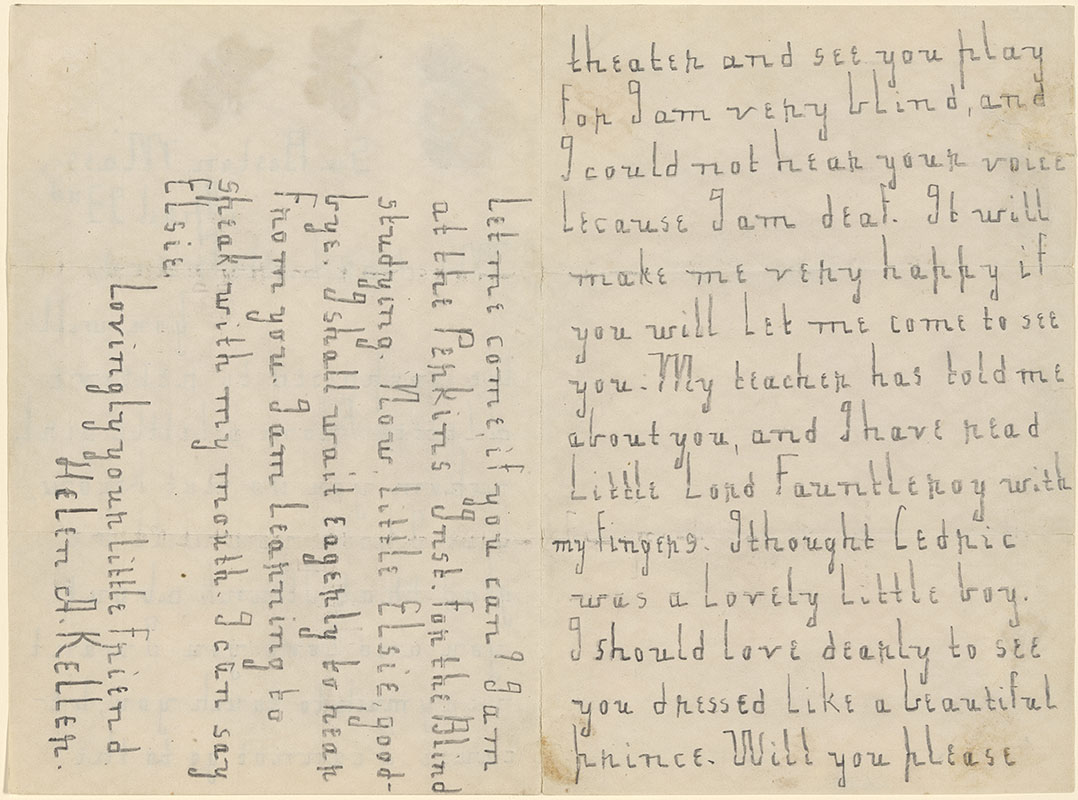 theater and see you play
for I am very blind, and
I could not hear your voice
because I am deaf. It will
make me very happy if
you will let me come to see
you. My teacher has told me
about you, and I have read
Little Lord Fauntleroy with
my fingers. I thought Cedric
was a lovely little boy.
I should love dearly to see
you dressed like a beautiful
prince. Will you please
let me come, if you can? I am
at the Perkins Inst. for the Blind
studying. Now little Elsie, good-
bye. I shall wait eagerly to hear
from you. I am learning to
speak with my mouth. I can say
Elsie.
Lovingly your little friend
Helen A. Keller.